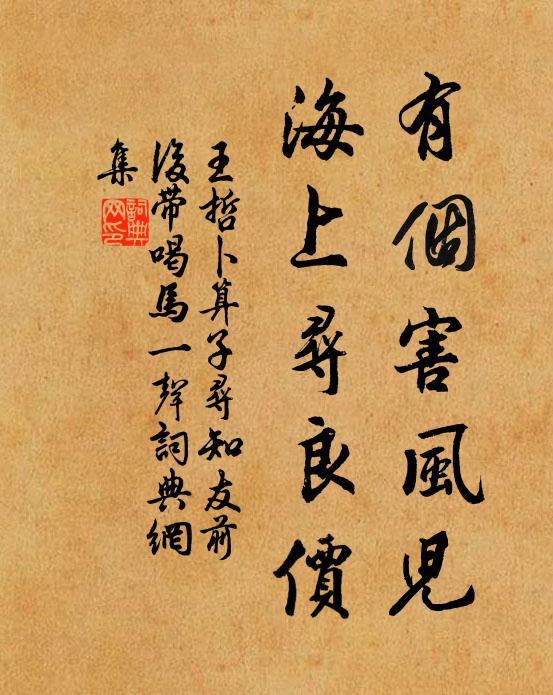 有個害風兒
海上尋良價
王哲卜算子尋知友前
後帶喝馬一聲詞典網
集
詞典網印